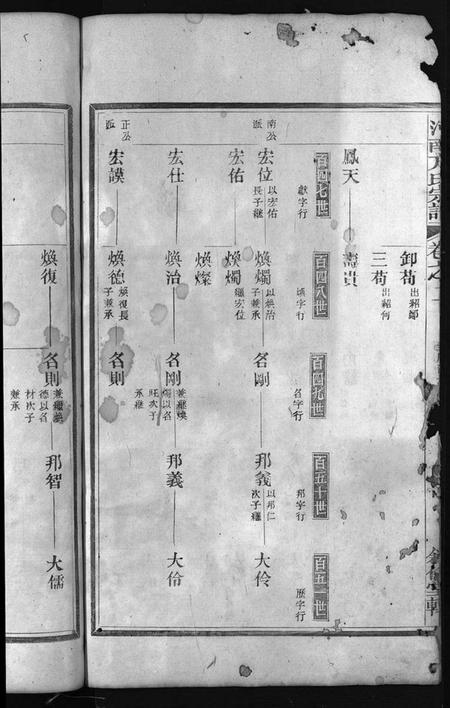 河南方氏宗譜
卸荀 出紹節
三荀 出紹何
鳳天 壽貴
百四七世 獻字行
百四八世 煥字行
百四九世 名字行
百五十世 邦字行
百五一世 歷字行
南公派
宏位 以宏佑長子繼
煥燭 以煥治子兼承
名剛
邦義 以邦仁次子繼
大伶
宏佑
煥燭 繼宏位
煥燦
宏仕
煥治
名剛 兼繼煥燭以名旺次子承繼
邦義
大伶
正公派
宏謨
煥德 煥復長子兼承
名則
煥復
名則 兼繼煥德以名材次子兼承
邦智
大儒